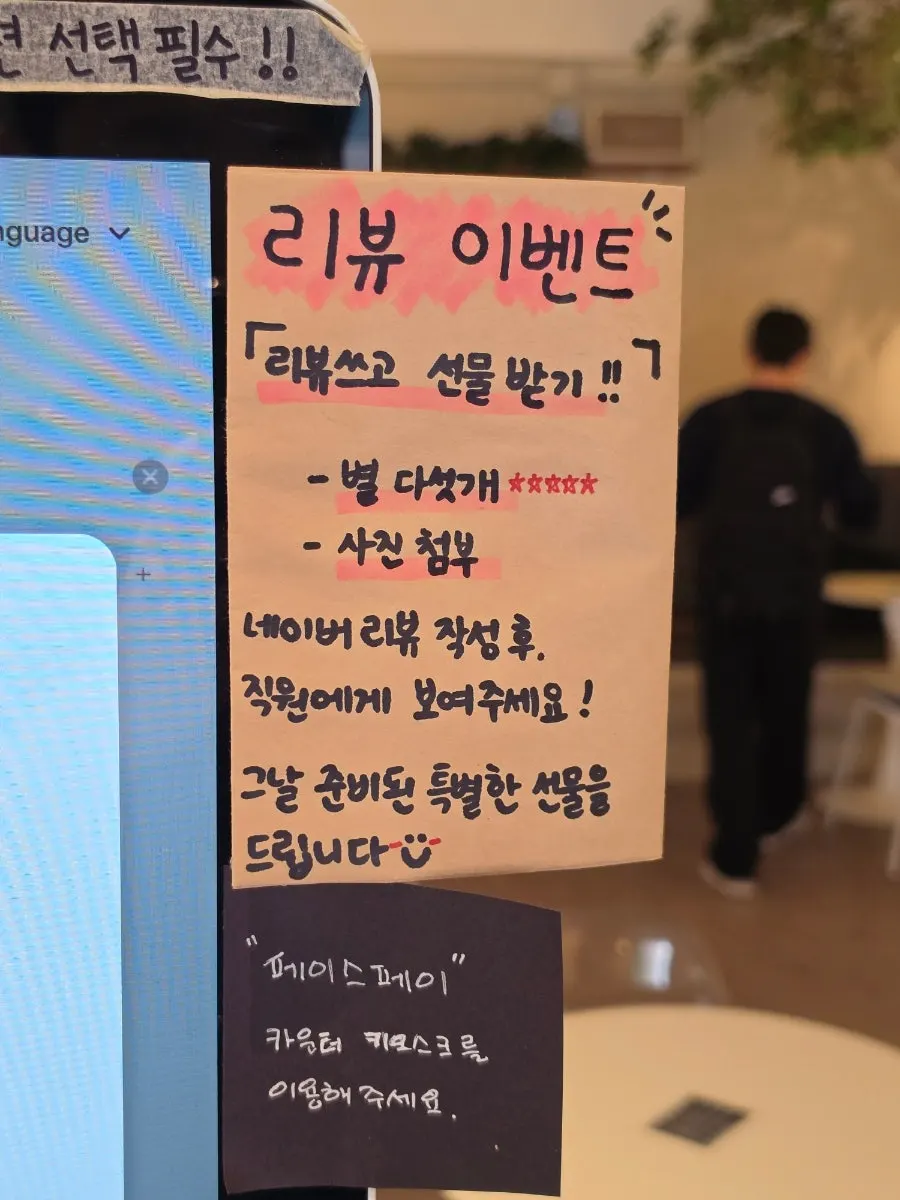 션 선택 필수!!
nguage
리뷰 이벤트
「리뷰쓰고 선물 받기!!」
- 별 다섯개 ☆☆☆☆☆
- 사진 첨부
네이버 리뷰 작성 후.
직원에게 보여주세요!
그날 준비된 특별한 선물을
드립니다
"페이스페이"
카운터 키오스크를
이용해주세요.